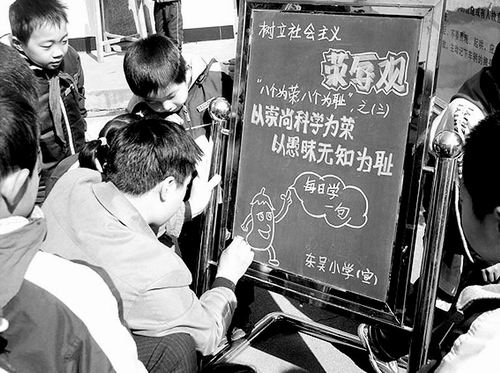 树立社会主义
荣辱观
"八个为荣八个为耻"之(三)
以崇尚科学为荣
以愚昧无知为耻
每日学
一句
东吴小学(宣)